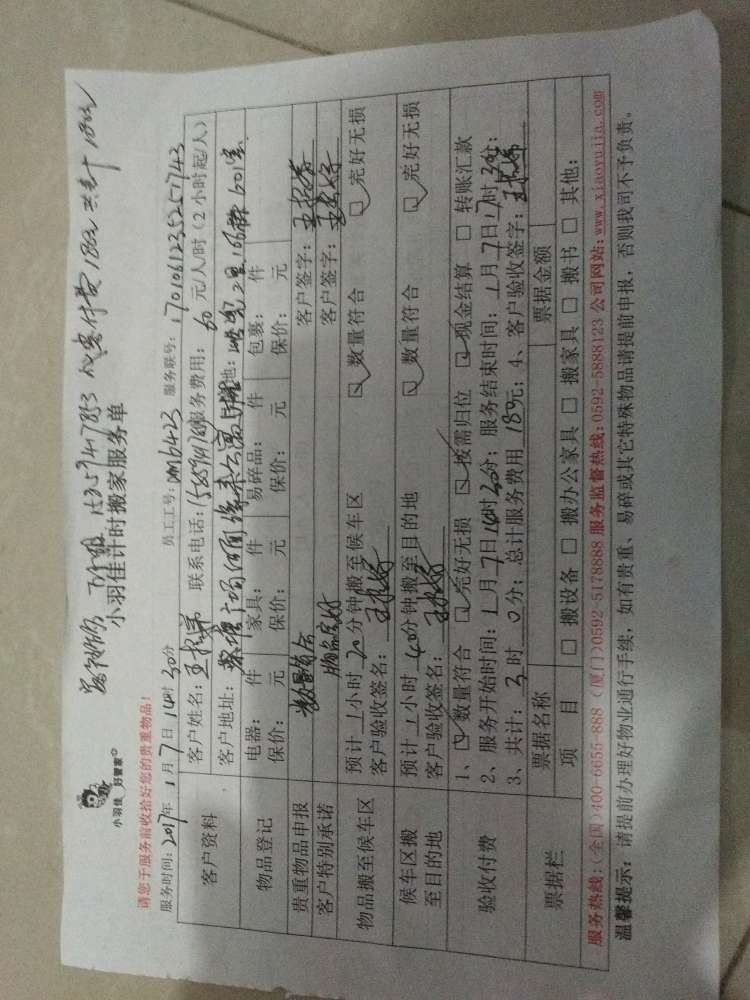 代客付费180元 共计180元
小羽佳 好管家
小羽佳计时搬家服务单
请您于服务前收拾好您的贵重物品！
服务时间：2017年1月7日14时30分 员工工号：DM6423 服务联号：1701061235251743
客户资料
客户姓名： 联系电话： 服务费用：60元/人/时（2小时起/人）
客户地址：
物品登记
电器： 件 家具： 件 易碎品： 件 包裹： 件
保价： 元 保价： 元 保价： 元 保价： 元
贵重物品申报 数量符合 客户签字：
客户特别承诺 物品完好 客户签字：
物品搬至候车区
预计1小时20分钟搬至候车区 数量符合 完好无损
客户验收签名：
候车区搬至目的地
预计1小时40分钟搬至目的地 数量符合 完好无损
客户验收签名：
验收付费
1、数量符合 完好无损 按需归位 现金结算 转账汇款
2、服务开始时间：1月7日14时30分；服务结束时间：1月7日17时30分；
3、共计：3时0分；总计服务费用180元；4、客户验收签字：
票据栏
票据名称 票据金额
项目 搬设备 搬办公家具 搬家具 搬书 其他：
服务热线：（全国）400-6655-888（厦门）0592-5178888 服务监督热线：0592-5888123 公司网站：www.xiaoyujia.com
温馨提示：请提前办理好物业通行手续，如有贵重、易碎或其它特殊物品请提前申报，否则我司不予负责。